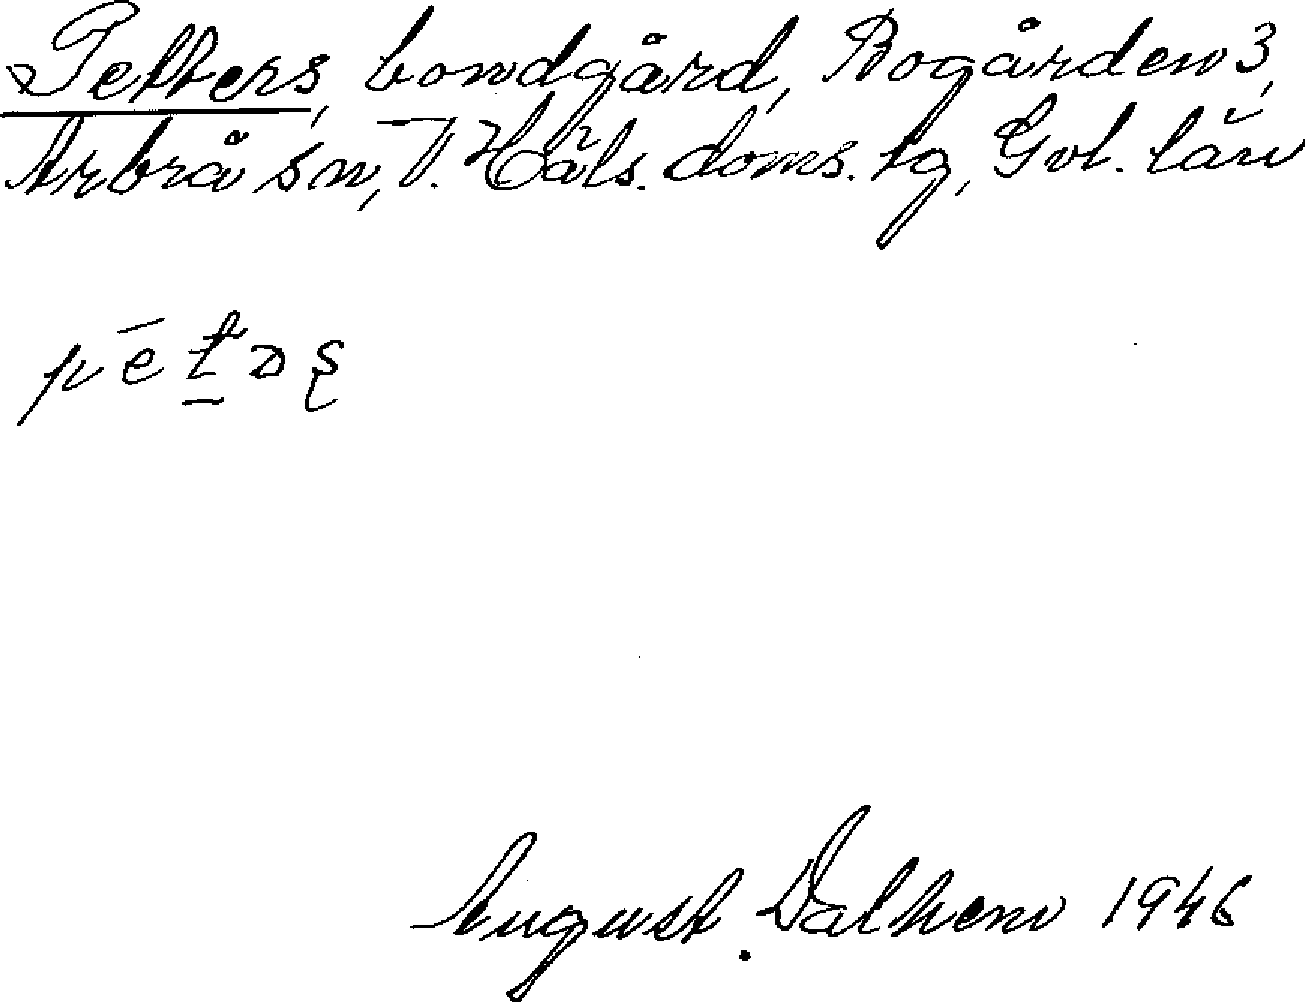 Petters, bondgård, Bogården 3,
Arbrå sn, V. Häls. doms. lg, Gvl. län
August Dalhem 1946